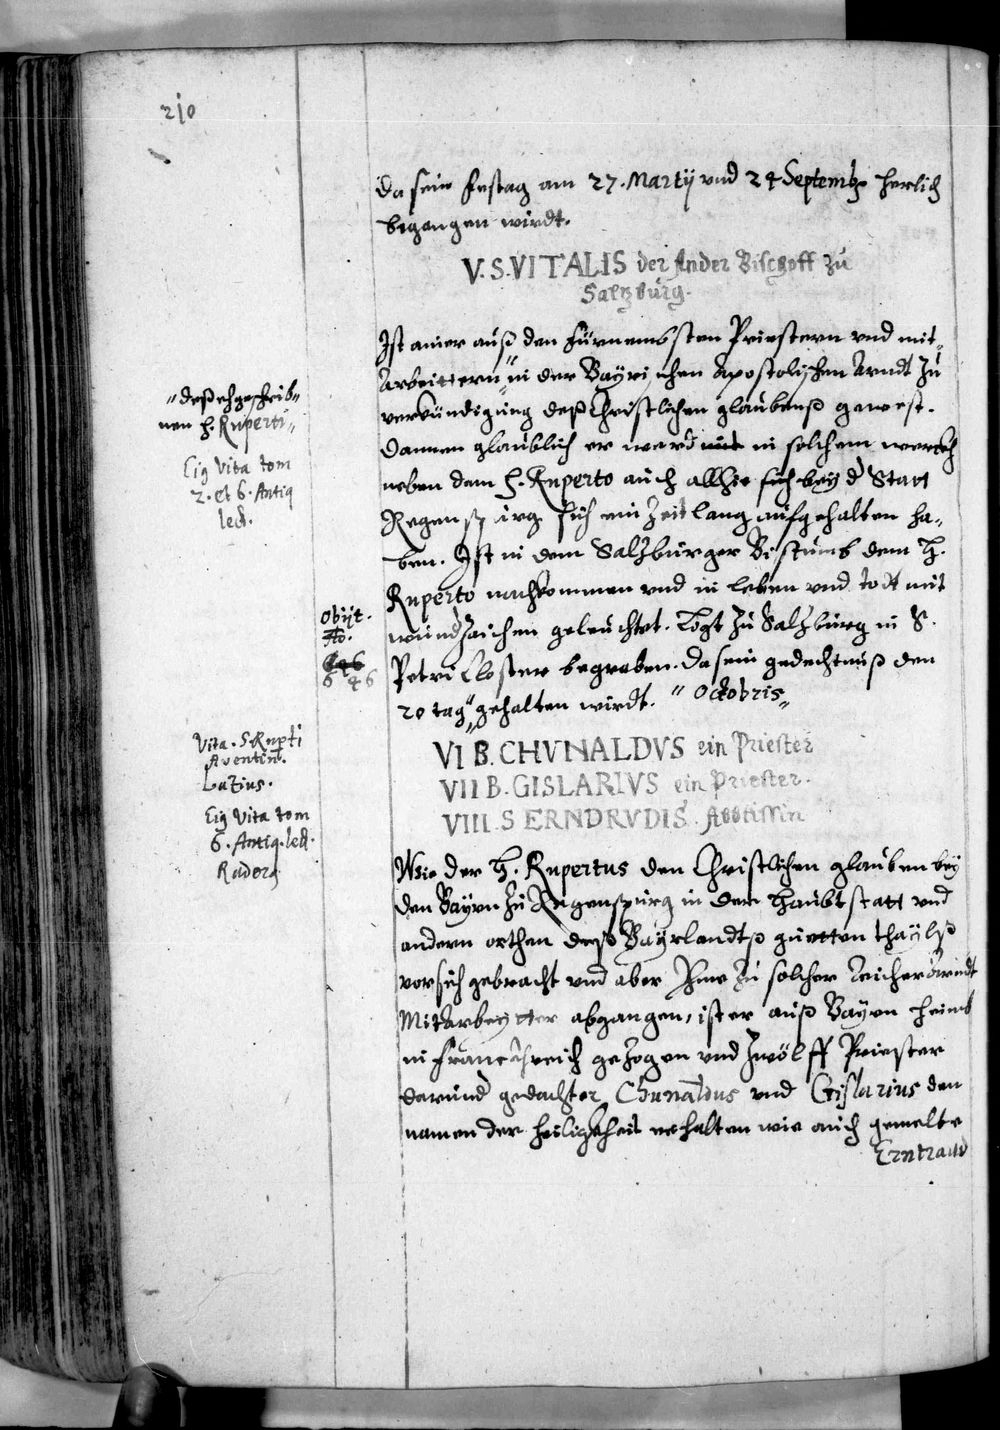 210
Da sein festag am 27. Martij vnd 24 Septemb. herlich
begangen wirdt.
V. S. VITALIS der Ander Bischoff zu
Saltzburg.
Ist ainer auß den fürnembsten Priestern vnd mit-
Arbeittern in der Bayrischen Apostolischen Arndt zu
verkündigung deß Christlichen glaubenß gewest.
Dannen glaublich er ward in solchem werckh
neben dem H. Ruperto auch allhie sich bey d Statt
Regenspurg sich ein Zeit lang aufgehalten ha-
ben. Ist in dem Saltzburger Bistumb dem H.
Ruperto nachkommen vnd in leben vnd todt mit
wundzaichen geleuchtet. Ligt zu Saltzburg in S.
Petri Closter begraben. Da sein gedechtnuß den
20 tag gehalten wirdt. " Octobris "
"deß ehgeschrib"
nen H. Ruperti"
Eig Vita tom
2. et 6. Antiq
lect.
Obijt.
Ao.
646
Vita. S Rupti
Aventin.
Lazius.
Eig Vita tom
6. Antiq. lect.
Rader
VI B. CHVNALDVS ein Priester
VII B. GISLARIVS ein Priester.
VIII. S ERNDRVDIS. Abbtissin
Wie der H. Rupertus den Christlichen glauben bey
den Bayrn zu Regenspurg in der Haubtstatt vnd
andern orthen deß Bayrlandtß guetten thaylß
vorsich gebracht vnd aber Ihme zu solcher reicher Arndt
Mitarbeytter abgangen, ist er auß Bayrn heimb
in Franckhreich gezogen vnd Zwölff Priester
darund gedachter Chunaldus vnd Gislarius den
namen der heiligkheit erhalten wie auch gemelte
Erntraud